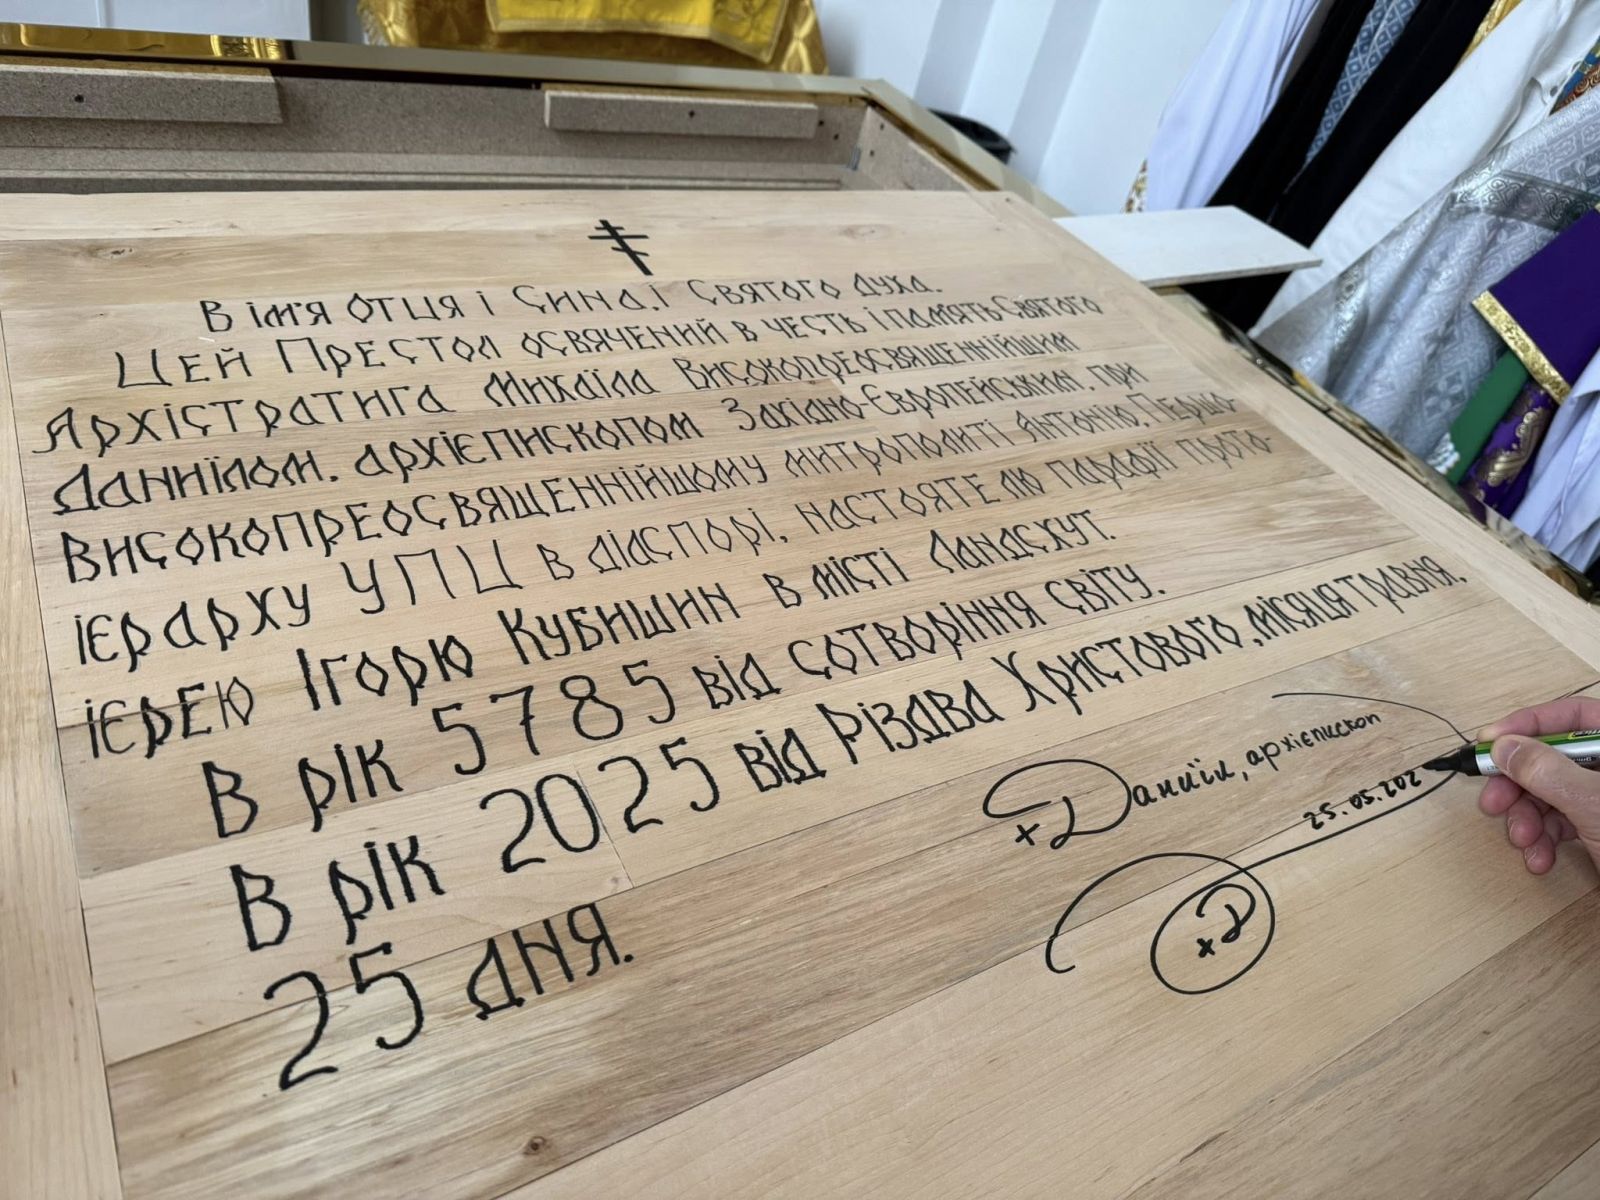 В ім'я Отця і Сина, і Святого Духа.
Цей Престол освячений в честь і пам'ять Святого
Архістратига Михаїла Високопреосвященнійшим
Даниїлом, архієпископом Західно-Європейським, при
Високопреосвященнійшому митрополиті Антонію, Першо-
ієрарху УПЦ в діаспорі, настоятелю парафії прото-
ієрею Ігорю Кубишин в місті Ландсхут.
В рік 5785 від сотворіння світу.
В рік 2025 від Різдва Христового, місяця травня,
25 дня.
+Даниїл, архієпископ
25.05.202
+Д